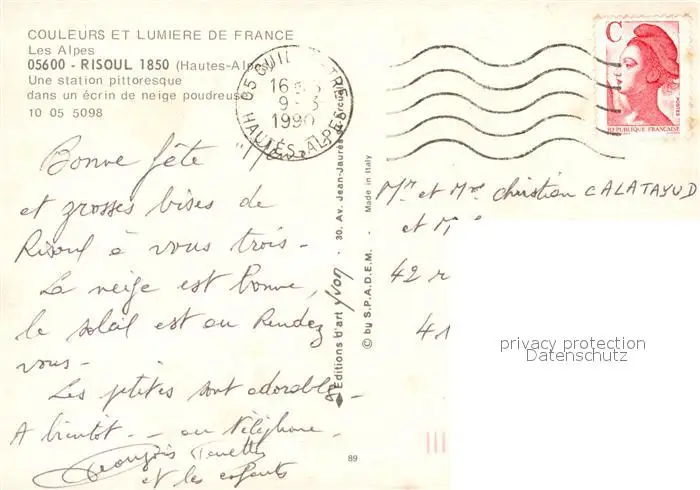 COULEURS ET LUMIERE DE FRANCE
Les Alpes
05600 - RISOUL 1850 (Hautes-Alpes)
Une station pittoresque
dans un écrin de neige poudreuse
10 05 5098
Bonne fête
et grosses bises de
Risoul à vous trois -
La neige est bonne,
le soleil est au rendez
vous -
Les petites sont adorables -
A bientôt -- au téléphone
François
et les enfants
Editions d'art yvon - 30. Av. Jean-Jaurès
© by S.P.A.D.E.M. - Made in Italy
89
05
16
9-3
1990
HAUTES-ALPES
C
POSTES
REPUBLIQUE FRANÇAISE
Mr et Mme Christian CALATAYUD
et
42
41
privacy protection
Datenschutz